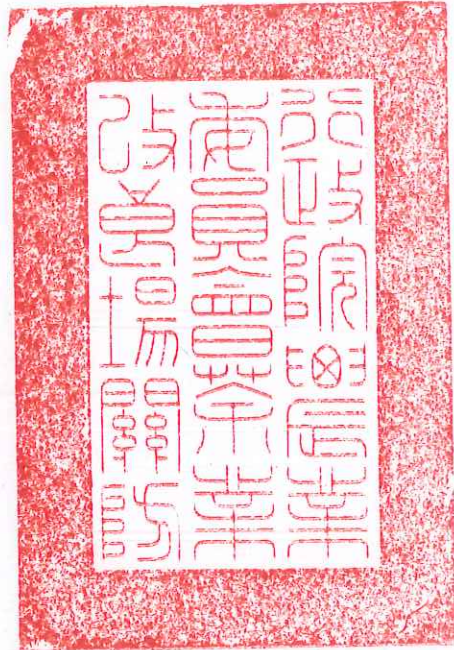 行政院農業
委員會茶業
改良場關防